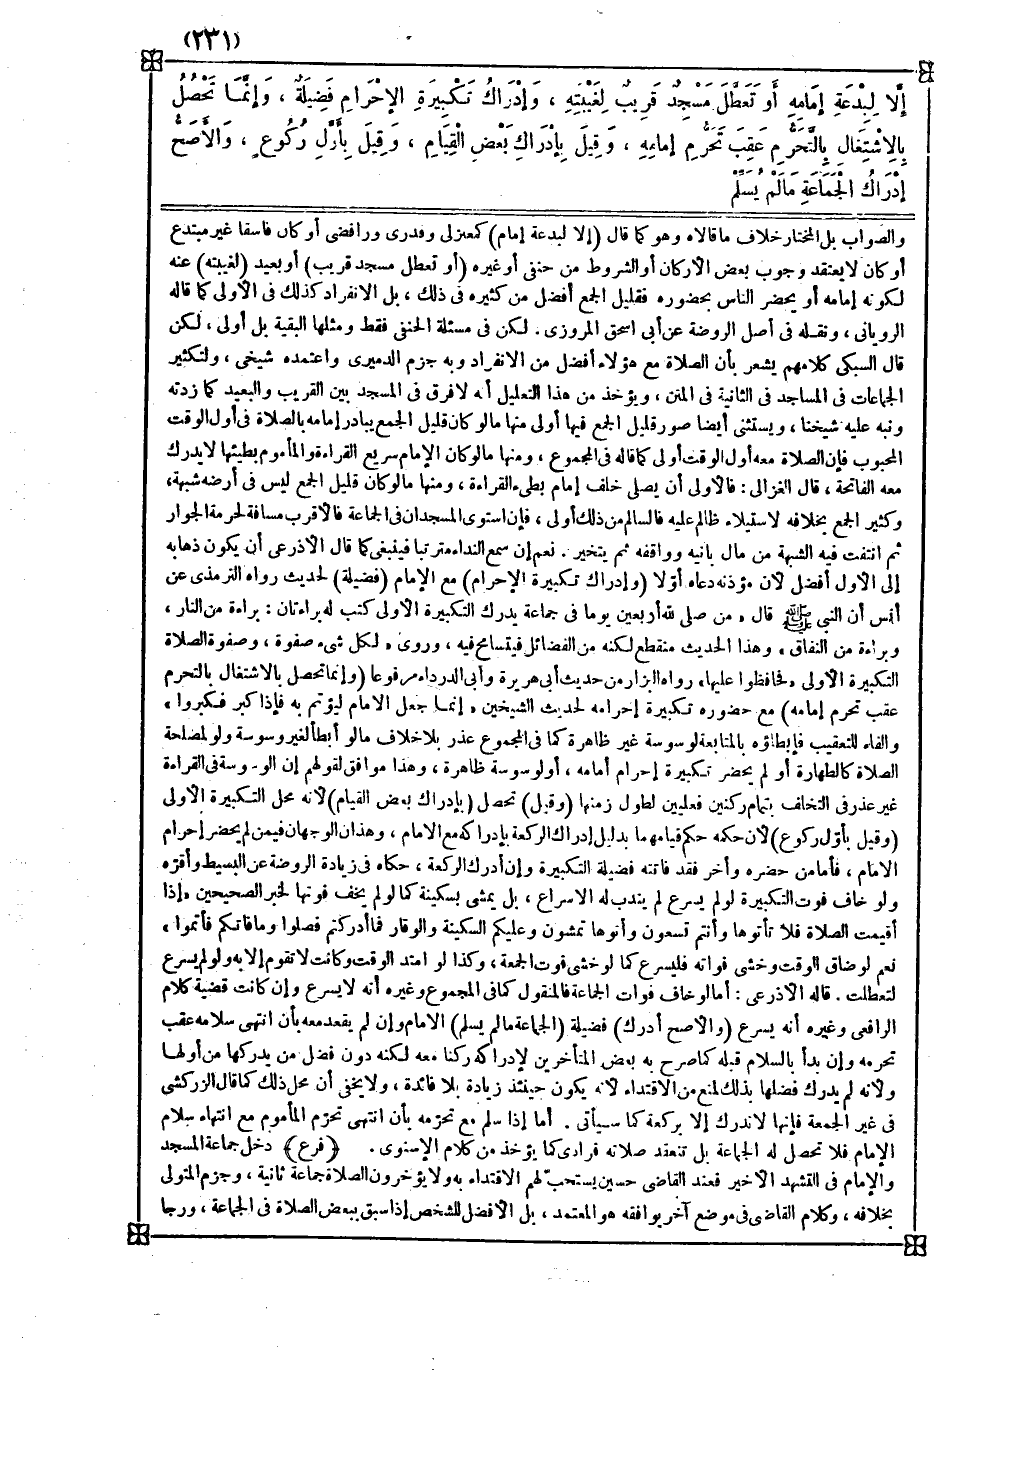 (٢٣١)
إِلَّا لِبِدْعَةِ إِمَامِهِ أَوْ تَعَطَّلَ مَسْجِدٌ قَرِيبٌ لِغَيْبَتِهِ ، وَإِدْرَاكُ تَكْبِيرَةِ الإِحْرَامِ فَضِيلَةٌ ، وَإِنَّمَا تَحْصُلُ
بِالِاشْتِغَالِ بِالتَّحَرُّمِ عَقِبَ تَحَرُّمِ إِمَامِهِ ، وَقِيلَ بِإِدْرَاكِ بَعْضِ الْقِيَامِ ، وَقِيلَ بِأَوَّلِ رُكُوعٍ ، وَالأَصَحُّ
إِدْرَاكُ الْجَمَاعَةِ مَا لَمْ يُسَلِّمْ
والصواب بل المختار خلاف ما قالاه وهو كما قال (إلا لبدعة إمام) كمعتزلى وقدرى ورافضى أو كان فاسقا غير مبتدع
أو كان لا يعتقد وجوب بعض الأركان أو الشروط من حنفى أو غيره (أو تعطل مسجد قريب) أو بعيد (لغيبته) عنه
لكونه إمامه أو يحضر الناس بحضوره فقليل الجمع أفضل من كثيره فى ذلك ، بل الانفراد كذلك فى الأولى كما قاله
الرويانى ، ونقله فى أصل الروضة عن أبى اسحق المروزى . لكن فى مسئلة الحنفى فقط ومثلها البقية بل أولى ، لكن
قال السبكى كلامهم يشعر بأن الصلاة مع هؤلاء أفضل من الانفراد وبه جزم الدميرى واعتمده شيخى ، ولتكثير
الجماعات فى المساجد فى الثانية فى المتن ، ويؤخذ من هذا التعليل أنه لا فرق فى المسجد بين القريب والبعيد كما زدته
ونبه عليه شيخنا ، ويستثنى أيضا صور قليل الجمع فيها أولى منها ما لو كان قليل الجمع يبادر إمامه بالصلاة فى أول الوقت
المحبوب فإن الصلاة معه أول الوقت أولى كما قاله فى المجموع ، ومنها ما لو كان الإمام سريع القراءة والمأموم بطيئها لا يدرك
معه الفاتحة ، قال الغزالى : فالأولى أن يصلى خلف إمام بطىء القراءة ، ومنها ما لو كان قليل الجمع ليس فى أرضه شبهة،
وكثير الجمع بخلافه لاستيلاء ظالم عليه فالسالم من ذلك أولى ، فإن استوى المسجدان فى الجماعة فالأقرب مسافة لحرمة الجوار
ثم انتفت فيه الشبهة من مال بانيه وواقفه ثم يتخير . نعم إن سمع النداء مترتبا فينبغى كما قال الأذرعى أن يكون ذهابه
إلى الأول أفضل لأن مؤذنه دعاه أولا (وإدراك تكبيرة الإحرام) مع الإمام (فضيلة) لحديث رواه الترمذى عن
أنس أن النبى ﷺ قال « من صلى لله أربعين يوما فى جماعة يدرك التكبيرة الأولى كتب له براءتان : براءة من النار ،
وبراءة من النفاق » وهذا الحديث منقطع لكنه من الفضائل فيتسامح فيه ، وروى « لكل شىء صفوة ، وصفوة الصلاة
التكبيرة الأولى ، فحافظوا عليها » رواه البزار من حديث أبى هريرة وأبى الدرداء مرفوعا (وإنما تحصل بالاشتغال بالتحرم
عقب تحرم إمامه) مع حضوره تكبيرة إحرامه لحديث الشيخين « إنما جعل الامام ليؤتم به فإذا كبر فكبروا »
والفاء للتعقيب فإبطاؤه بالمتابعة لوسوسة غير ظاهرة كما فى المجموع عذر بلا خلاف ما لو أبطأ لغير وسوسة ولو لمصلحة
الصلاة كالطهارة أو لم يحضر تكبيرة إحرام أمامه ، أو لوسوسة ظاهرة ، وهذا موافق لقولهم إن الوسوسة فى القراءة
غير عذر فى التخلف بتمام ركنين فعليين لطول زمنها (وقيل) تحصل (بإدراك بعض القيام) لأنه محل التكبيرة الأولى
(وقيل بأول ركوع) لأن حكمه حكم قيامهما بدليل إدراك الركعة بإدراكه مع الامام ، وهذان الوجهان فيمن لم يحضر إحرام
الامام ، فأما من حضره وأخر فقد فاتته فضيلة التكبيرة وإن أدرك الركعة ، حكاه فى زيادة الروضة عن البسيط وأقره
ولو خاف فوت التكبيرة لو لم يسرع لم يندب له الاسراع ، بل يمشى بسكينة كما لو لم يخف فوتها لخبر الصحيحين « إذا
أقيمت الصلاة فلا تأتوها وأنتم تسعون وأتوها تمشون وعليكم السكينة والوقار فما أدركتم فصلوا وما فاتكم فأتموا »
نعم لو ضاق الوقت وخشى فواته فليسرع كما لو خشى فوت الجمعة ، وكذا لو امتد الوقت وكانت لا تقوم إلا به ولو لم يسرع
لتعطلت . قاله الأذرعى : أما لو خاف فوات الجماعة فالمنقول كما فى المجموع وغيره أنه لا يسرع وإن كانت قضية كلام
الرافعى وغيره أنه يسرع (والأصح أدرك) فضيلة (الجماعة ما لم يسلم) الامام وإن لم يقعد معه بأن انتهى سلامه عقب
تحرمه وإن بدأ بالسلام قبله كما صرح به بعض المتأخرين لإدراكه ركنا معه لكنه دون فضل من يدركها من أولها
ولأنه لو لم يدرك فضلها بذلك لمنع من الاقتداء لأنه يكون حينئذ زيادة بلا فائدة ، ولا يخفى أن محل ذلك كما قال الزركشى
فى غير الجمعة فإنها لا تدرك إلا بركعة كما سيأتى . أما إذا سلم مع تحرمه بأن انتهى تحرم المأموم مع انتهاء سلام
الإمام فلا تحصل له الجماعة بل تنعقد صلاته فرادى كما يؤخذ من كلام الإسنوى . (فرع) دخل جماعة المسجد
والإمام فى التشهد الأخير فعند القاضى حسين يستحب لهم الاقتداء به ولا يؤخرون الصلاة جماعة ثانية ، وجزم المتولى
بخلافه ، وكلام القاضى فى موضع آخر يوافقه هو المعتمد ، بل الأفضل للشخص إذا سبق ببعض الصلاة فى الجماعة ، ورجا